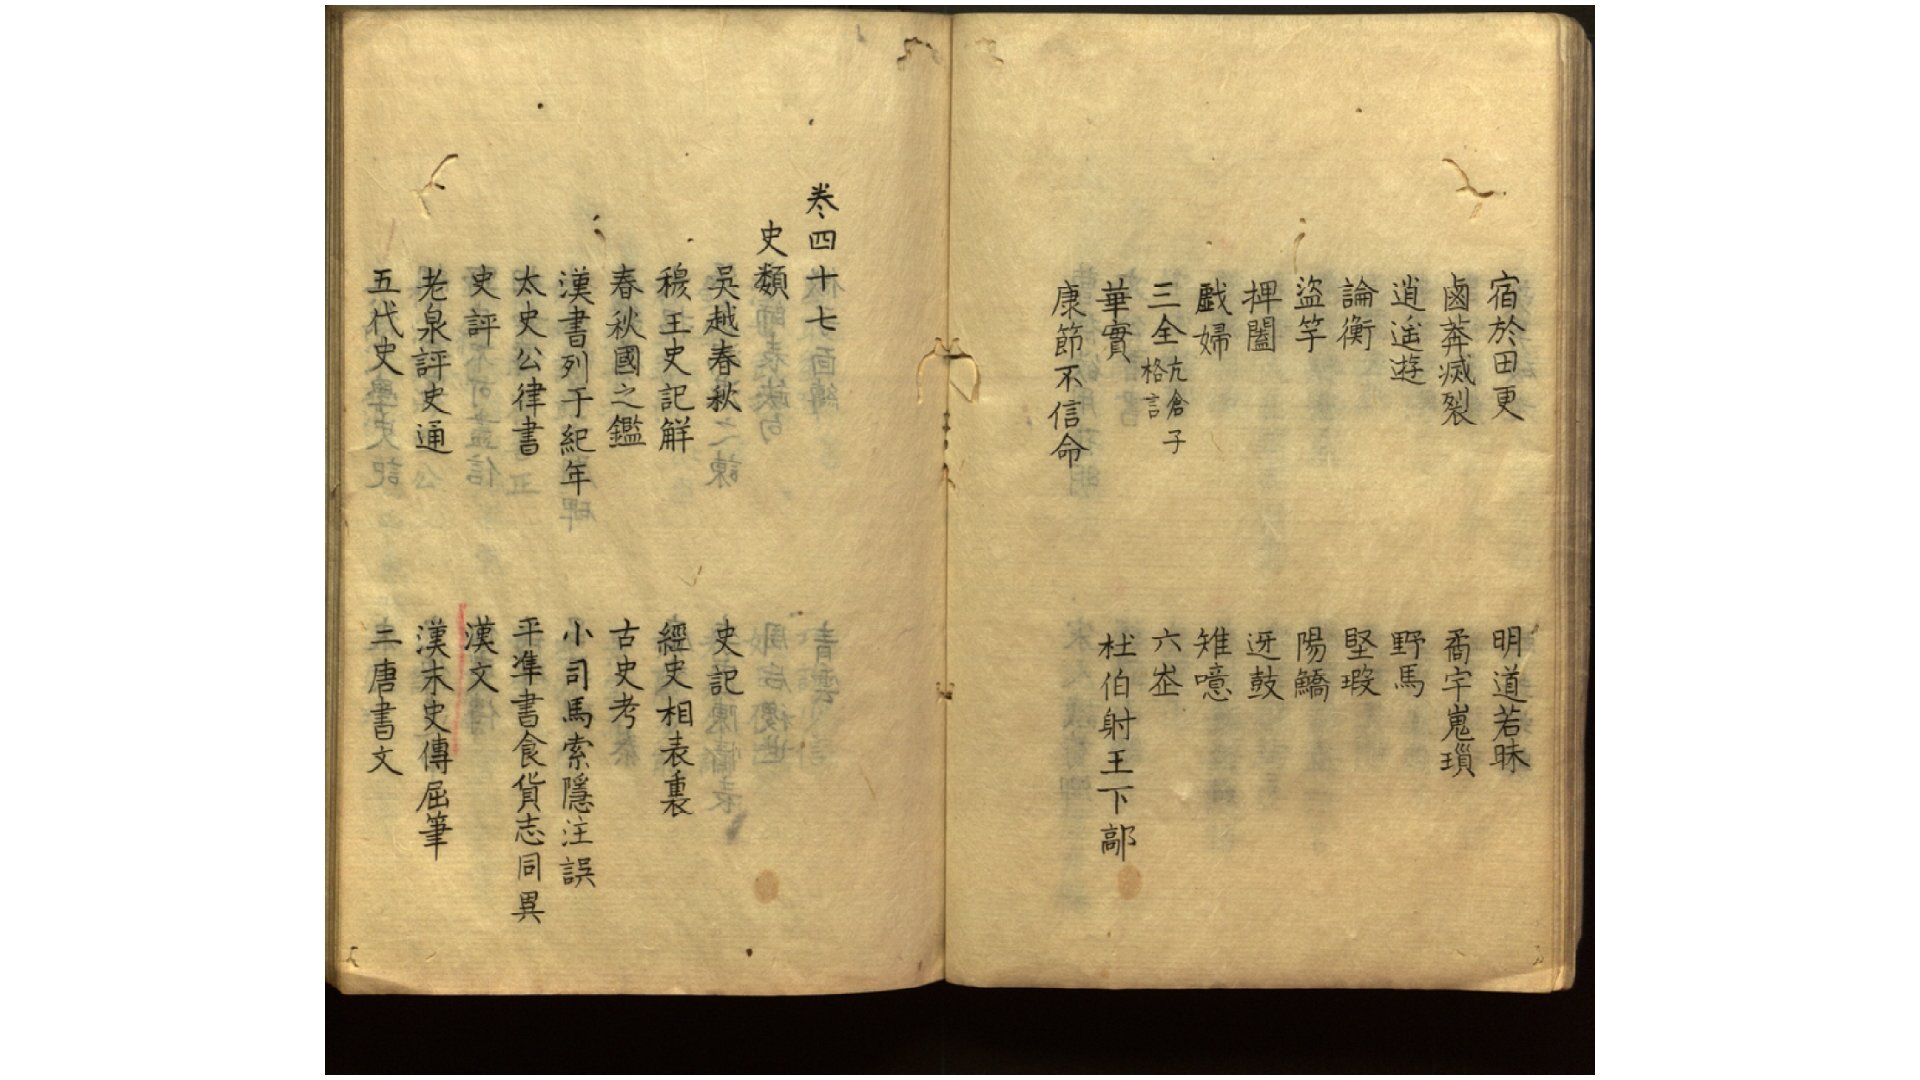 宿於田更　明道若昧
鹵莽滅裂　矞宇嵬瑣
逍遙遊　野馬
論衡　堅瑕
盜竽　陽鱎
捭闔　迓鼓
戲婦　雉噫
三全 亢倉子格言　六
華實　杜伯射王下鄗
康節不信命
卷四十七
史類
吳越春秋　史記
穆王史記解　經史相表裏
春秋國之鑑　古史考
漢書列于紀年　小司馬索隱注誤
太史公律書　平準書食貨志同異
史評　漢文
老泉評史通　漢末史傳屈筆
五代史　三唐書文